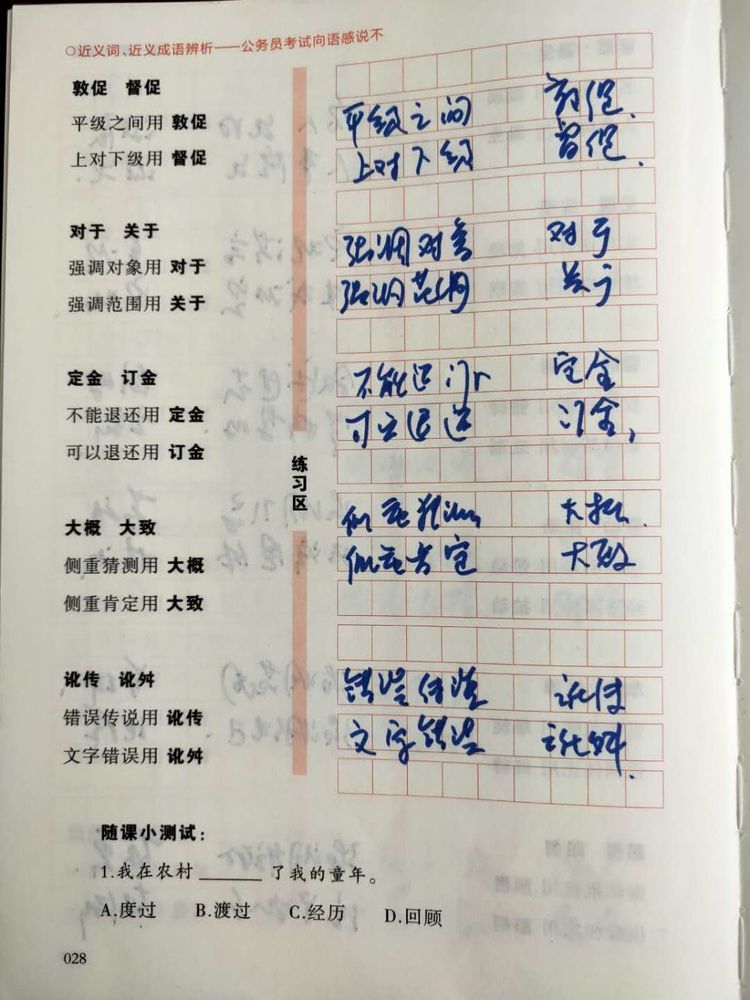 ○近义词、近义成语辨析——公务员考试向语感说不
敦促 督促
平级之间用 敦促
上对下级用 督促
平级之间 敦促.
上对下级 督促.
对于 关于
强调对象用 对于
强调范围用 关于
强调对象 对于
强调范围 关于
定金 订金
不能退还用 定金
可以退还用 订金
不能退还 定金
可以退还 订金,
练习区
大概 大致
侧重猜测用 大概
侧重肯定用 大致
侧重猜测 大概.
侧重肯定 大致
讹传 讹舛
错误传说用 讹传
文字错误用 讹舛
错误传 讹传
文字错误 讹舛.
随课小测试:
1.我在农村______了我的童年。
A.度过 B.渡过 C.经历 D.回顾
028